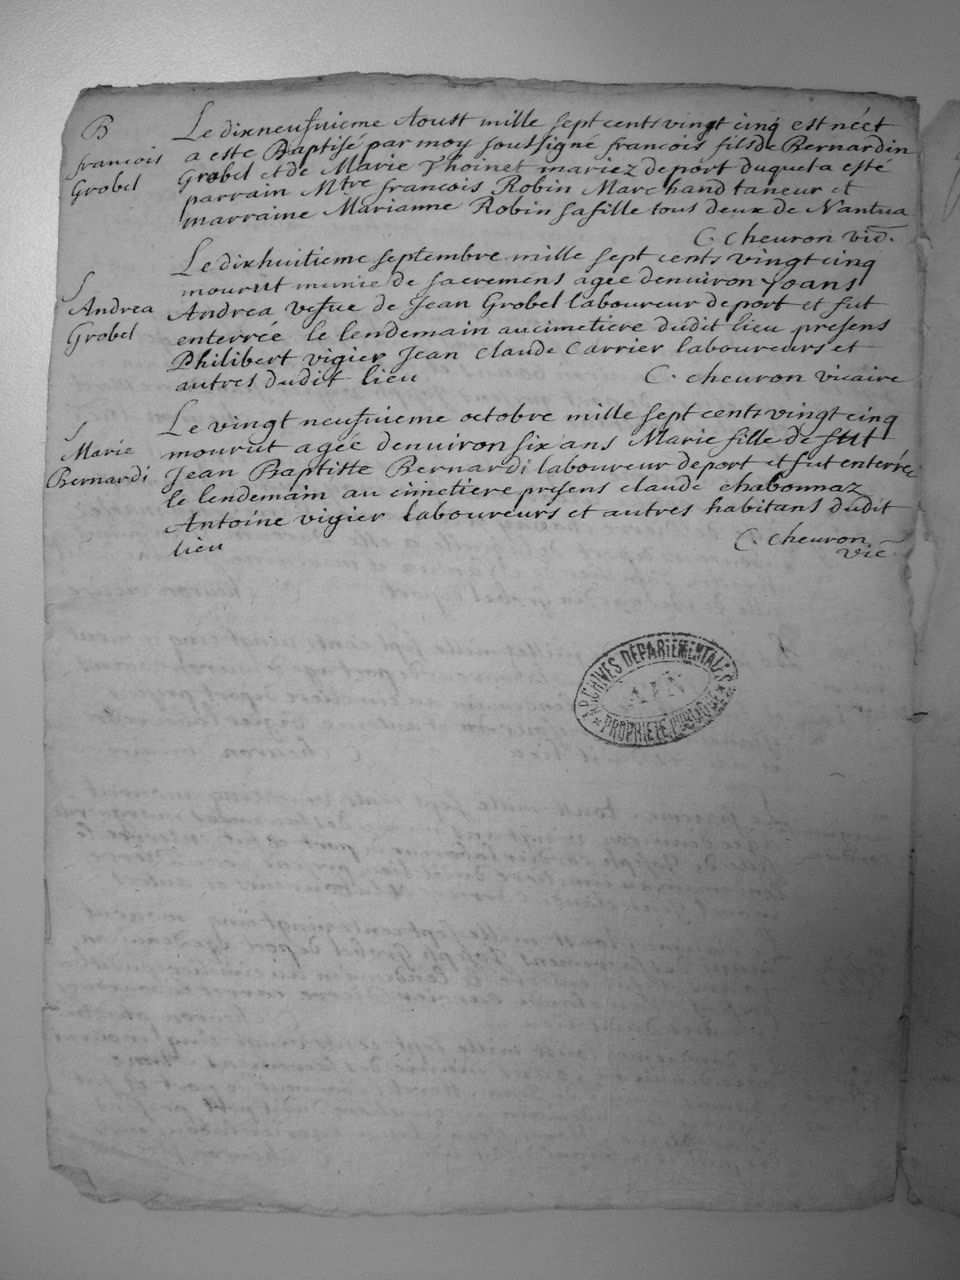 B
francois
Grobel
Le dixneufuieme Aoust mille sept cents vingt cinq est né et
a este Baptisé par moy soussigné francois fils de Bernardin
Grobel et de Marie Thoinet mariez de port duquel a esté
parrain Mtre francois Robin Marchand taneur et
marraine Marianne Robin sa fille tous deux de Nantua
C. cheuron vic.
S
Andrea
Grobel
Le dixhuitieme septembre mille sept cents vingt cinq
mourut munie de sacremens agee denuiron 70 ans
Andrea vefue de Jean Grobel laboureur de port et fut
enterrée le lendemain au cimetiere dudit lieu presens
Philibert vigier Jean claude Carrier laboureurs et
autres dudit lieu C. cheuron vicaire
S
Marie
Bernardi
Le vingt neufuieme octobre mille sept cents vingt cinq
mourut agee denuiron six ans Marie fille de
Jean Baptiste Bernardi laboureur de port et fut enterrée
le lendemain au cimetiere presens claude chabonnaz
Antoine vigier laboureurs et autres habitans dudit
lieu C. cheuron
vic
ARCHIVES DEPARTEMENTALES
AIN
PROPRIETE PUBLIQUE